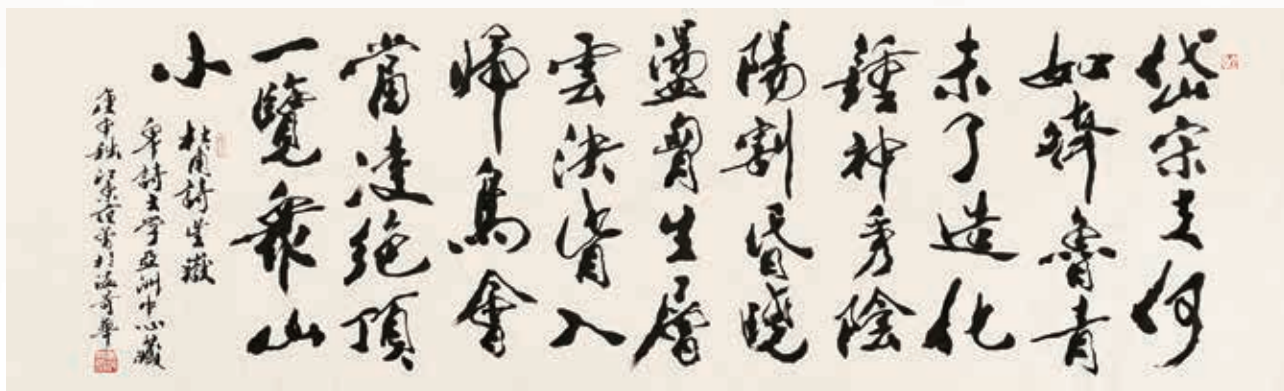 岱宗夫何
如齊魯青
未了造化
鍾神秀陰
陽割昏曉
盪胷生層
雲決眥入
歸鳥會
當凌絕頂
一覽眾山
小
杜甫詩望嶽
詩大學亞洲中心藏